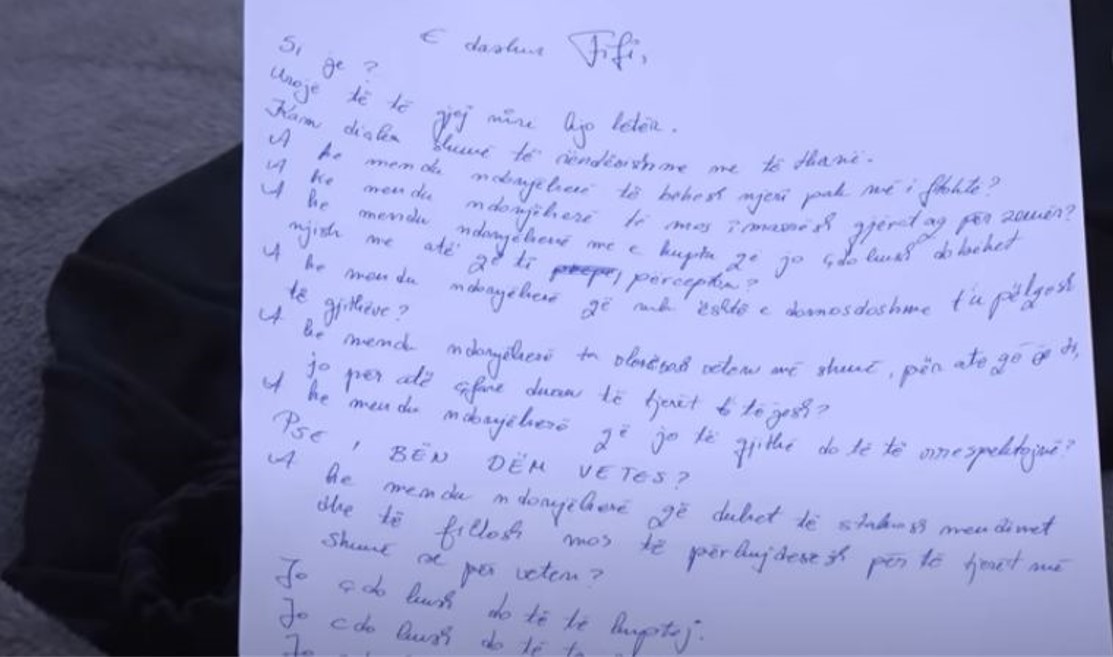 E dashur Fifi,
Si je ?
Uroje të të gjej mirë kjo letër.
Kam diçka shumë të rëndësishme me të thanë.
A ke mendu ndonjëherë të bëhesh njeri pak më i ftohtë?
A ke mendu ndonjëherë të mos i marrësh gjërat aq për zemër?
A ke mendu ndonjëherë me e kuptu që jo çdo kush do bëhet
njish me atë që ti percepton?
A ke mendu ndonjëherë që nuk është e domosdoshme t'u pëlqesh
të gjithëve?
A ke mendu ndonjëherë ta vlerësosh veten më shumë, për ate që je ti,
jo për atë çfarë duan të tjerët të jesh?
A ke mendu ndonjëherë që jo të gjithë do të të respektojnë?
Pse, BËN DËM VETES?
A ke mendu ndonjëherë që duhet të mendimet
dhe të fillosh mos të përkujdesesh për të tjerët më
shumë se për veten?
Jo çdo kush do të të kuptoj.
Jo cdo kush do të